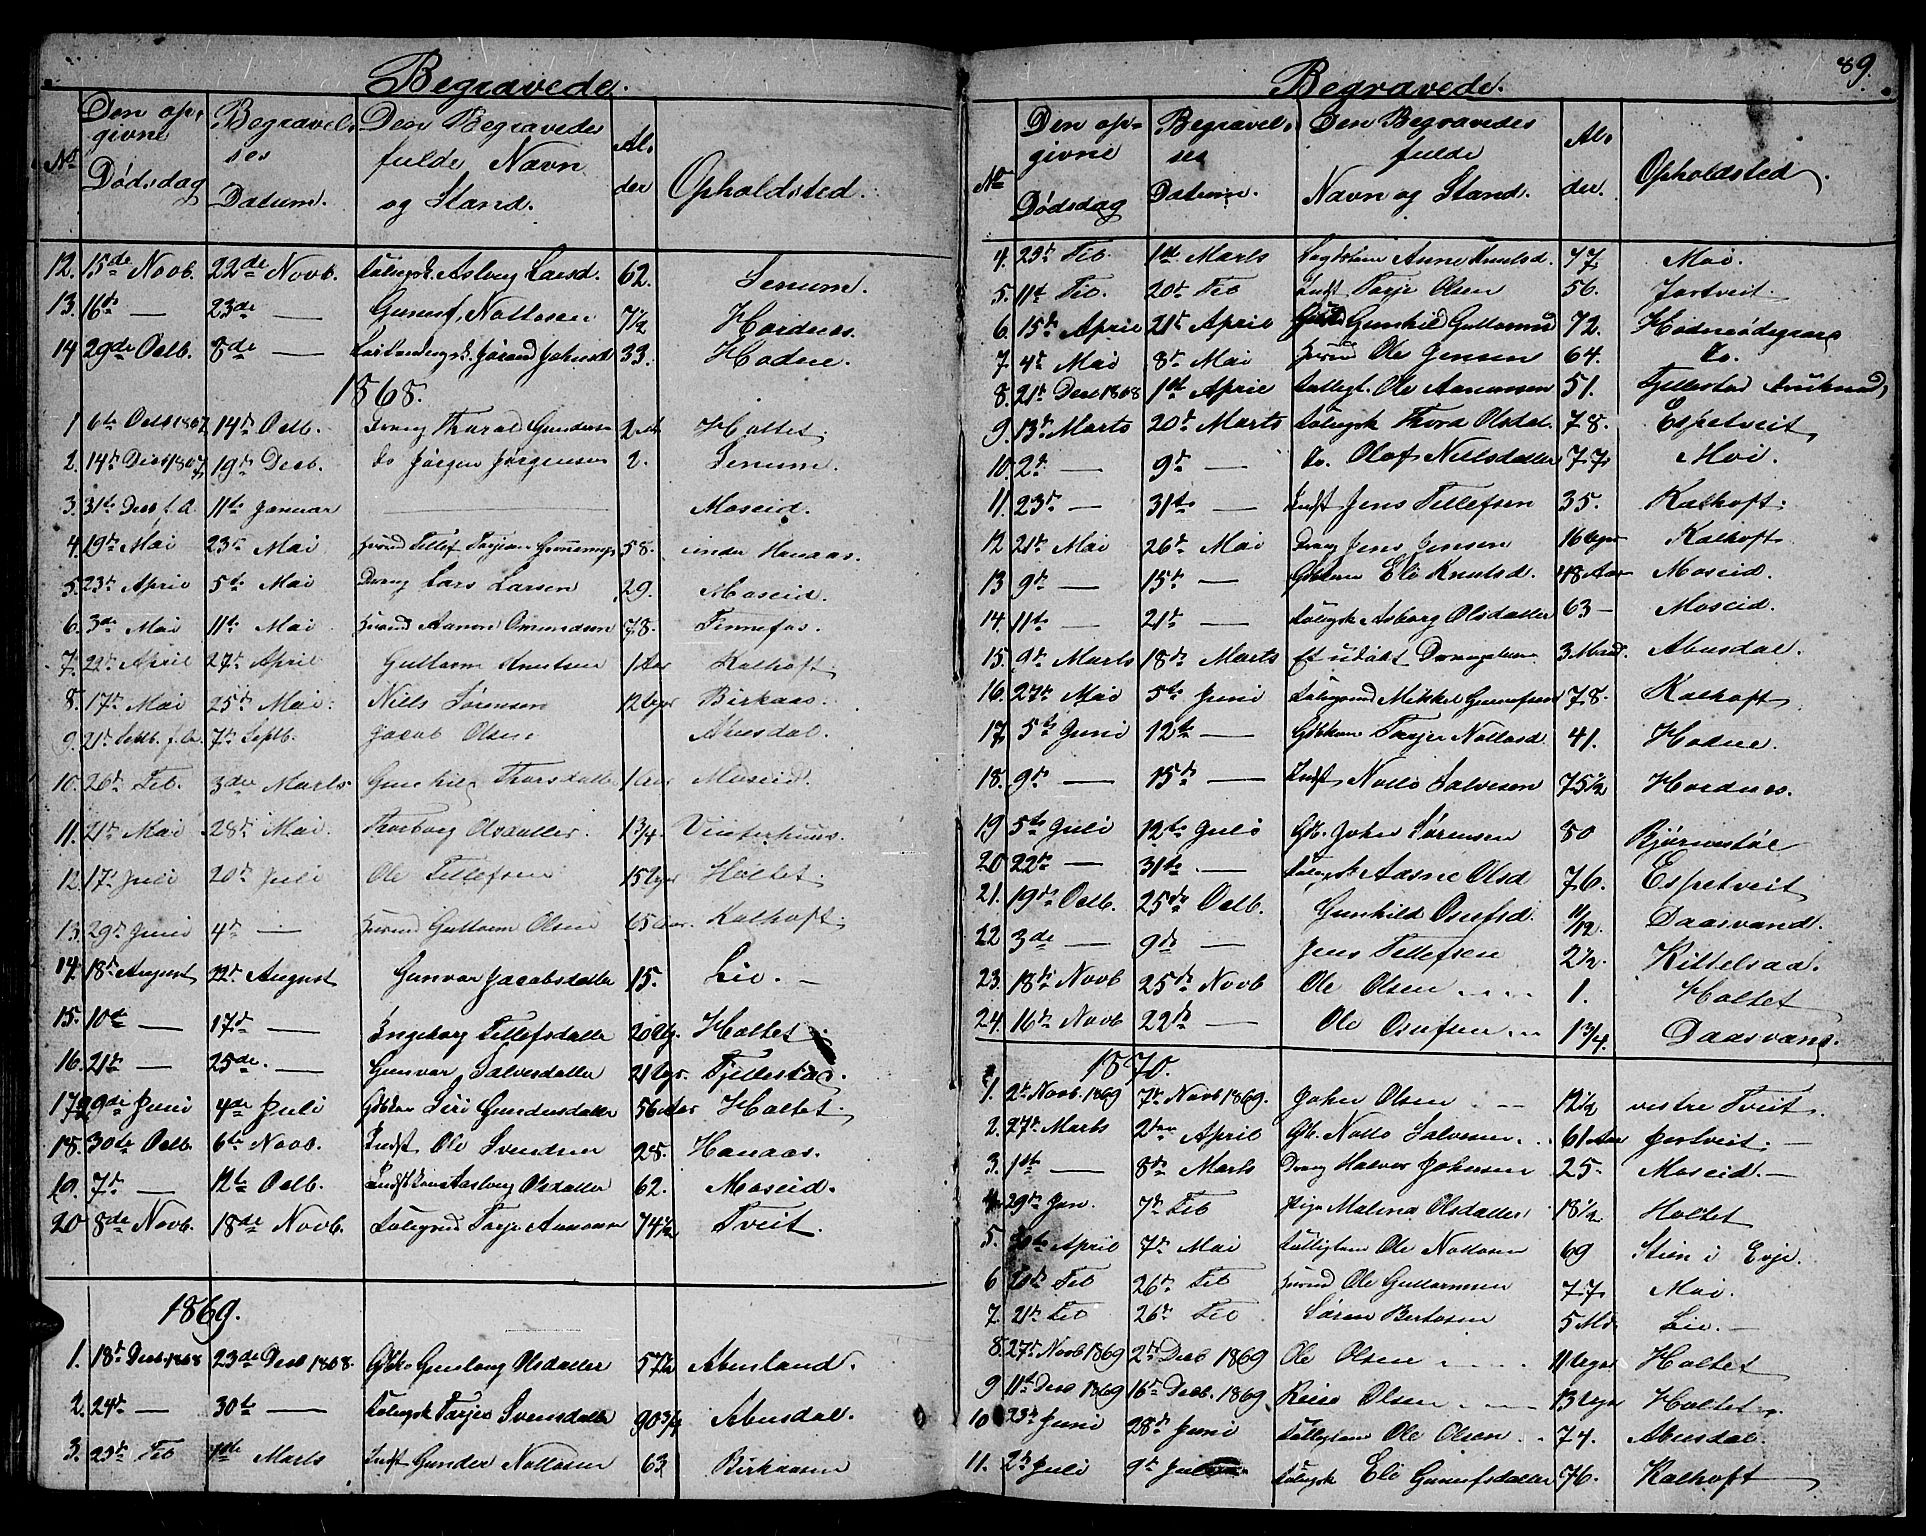 Begravede.
No Den opgivne Dødsdag Begravelses Datum. Den Begravedes fulde Navn og Stand. Alder Opholdsted.
12. 15de Novb. 22de Novb. Aasberg Larsd. 62. Senum.
13. 16de — 23de — Gunuf. Nottosen 7½ Hordnes.
14 29de Octb. 8de — Jørand Johnsd 33. Hodne.
1868.
1 6te Octb 1867 14de Octb. Dreng Tharal Gunders 2 Holtet.
2. 14de Decb 1867, 19de Decb. do Jørgen Jørgensen 2. Senum.
3. 31te Decb f.A. 11te Januar — Moseid.
4. 19de Mai 23de Mai Tellef Terjesen 58. Hanaas.
5. 23de April 5te Mai Dreng Lars Larsen 29. Moseid.
6. 3de Mai 11te Mai Aanon Omundsen 78. Finnefos.
7. 22de April 27de April Guttorm Knutsen 1 Aar Kalhoft.
8. 17de Mai 25de Mai. Niels Sørensen 12 Uger Birkaas.
9. 21de Septb. f.A. 7de Septb. Jacob Olsen Abusdal.
10. 26de Feb. 3de Marts Gunhild Thorsdatter 1 Aar Moseid.
11. 21de Mai 28de Mai. Thorborg Olsdatter. 1 3/4. Vinterhuus.
12. 17de Juli 20de Juli Ole Tellefsen 15 Uger Holtet.
13. 29de Juni 4de — Guttorm Olsen 65 Aar. Kalhoft.
14. 18de August 22de August Gunvor Jacobsdatter 15. Lie. —
15. 10de — 17de — Ingeborg Tellefsdatter 20 Ug. Holtet.
16. 21de — 25de. — Gunvor Salvesdatter 21 Uger. Fjellestad.
17 29de Juni 4de Juli Siri Gundersdatter 56 Aar Holtet.
18. 30te Octb. 6te Novb. Indst Ole Svendsen 28. Hanaas.
19. 7de — 12te Octb. Aasberg Olsdatter 62. Moseid.
20 8de Novb. 18de Novb. Terje Aanonsen 74½ Tveit.
1869.
1. 18de Decb. 1868 23de Decb 1868. Gunborg Olsdatter 57½ Abusland.
2. 24de — 30te — Terjer Svensdatter 90 3/4 Abusdal.
3. 23de Feb Marts Indst Gunder Nottosen 63 Birkaasen
Begravede. 89.
No Den opgivne Dødsdag Begravelses Datum. Den Begravedes fulde Navn og Stand. Alder. Opholdsted.
4. 23de Feb. 1ste Marts Anne Knutsd. 77 Moi.
5. 11te Feb. 20de Feb Indst Terje Olsen 56. Jortveit.
6. 15de April 21de April Gunhild Guttormsd 72. Hodneødegaard
7. 4de Mai 8de Mai Ole Jensen 64. Do.
8. 21de Decb 1868 1ste April Ole Aanonsen 51. Fjellestad
9. 13de Marts 20de Marts Thora Olsdat. 78. Espetveit
10. 2de — 9de — Do. Olaf Nielsdatter 77 Moi.
11. 23de — 31te — Indst Jens Tellefsen 35. Kalhoft.
12 21de Mai 26de Mai Dreng Jens Jensen 16 Uger Kalhoft.
13 9de — 15de — Eli Knutsd. 48 Aar Moseid.
14. 11te — 21de — Asborg Olsdatter 63 — Moseid.
15. 9de Marts 18de Marts Et udøbt Drengebarn 3 Maand. Abusdal.
16. 27de Mai 5te Juni Mikkel Gunufsen 78. Kalhoft
17. 5te Juni 12te — Terjer Nottosd. 41. Hodne.
18. 9de — 15de — Indst Notto Salvesen 75½ Hordnes.
19 5te Juli 12te Juli Gb. John Sørensen 80 Bjørnestøl
20 22de — 31te — Aasne Olsd 76. Espetveit
21. 19de Octb. 25de Octb. Gunhild Osufsd. 11/12. Daasvand.
22 3de — 9de — Jens Tellefsen 2½. Kittelsaa.
23. 18de Novb 25de Novb Ole Olsen 1. Holtet
24. 16de Novb 22de — Ole Osufsen 1 3/4. Daasvand.
1870.
1. 2de Novb. 1869 7de Novb 1869. John Olsen 12½ vestre Tveit.
2. 27de Marts 2den April Gb. Notto Salvesen 61 Aar Jortveit. —
3. 1ste — 8de Marts Dreng Halvor Johnsen 25. Moseid. —
4 29de Jan. 7de Feb Pige Malena Olsdatter 18½ Holtet
5. April 7de Mai Ole Nottosen 69 Stien i Evje.
6 20de Feb 26de Feb Ole Guttormsen 77. Moi.
7. 21de Feb 26de Feb. Søren Bertosen 5 Md. Lie. —
8. 27de Novb 1869 2de Decb 1869 Ole Olsen 11 Uger Holtet
9 11te Decb 1869 16de Decb. 1869. Reier Olsen 13 Uger Holtet.
10 23de Juni 28de Juni Ole Olsen 74. Abusdal.
11. 2de Juli 9de Juli Eli Gunufsdatter 76. Kalhoft